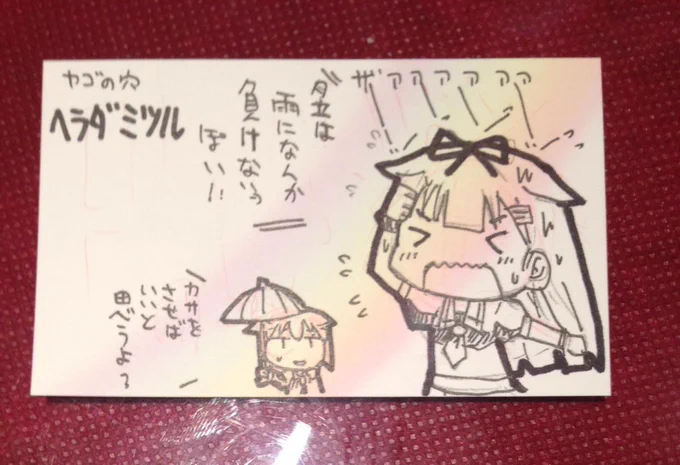 ヤゴの穴
ヘラダミツル
ザァァァァァァ
夕立は
雨になんか
負けないっ
ぽい!!
カサを
させば
いいと
思うよぅ